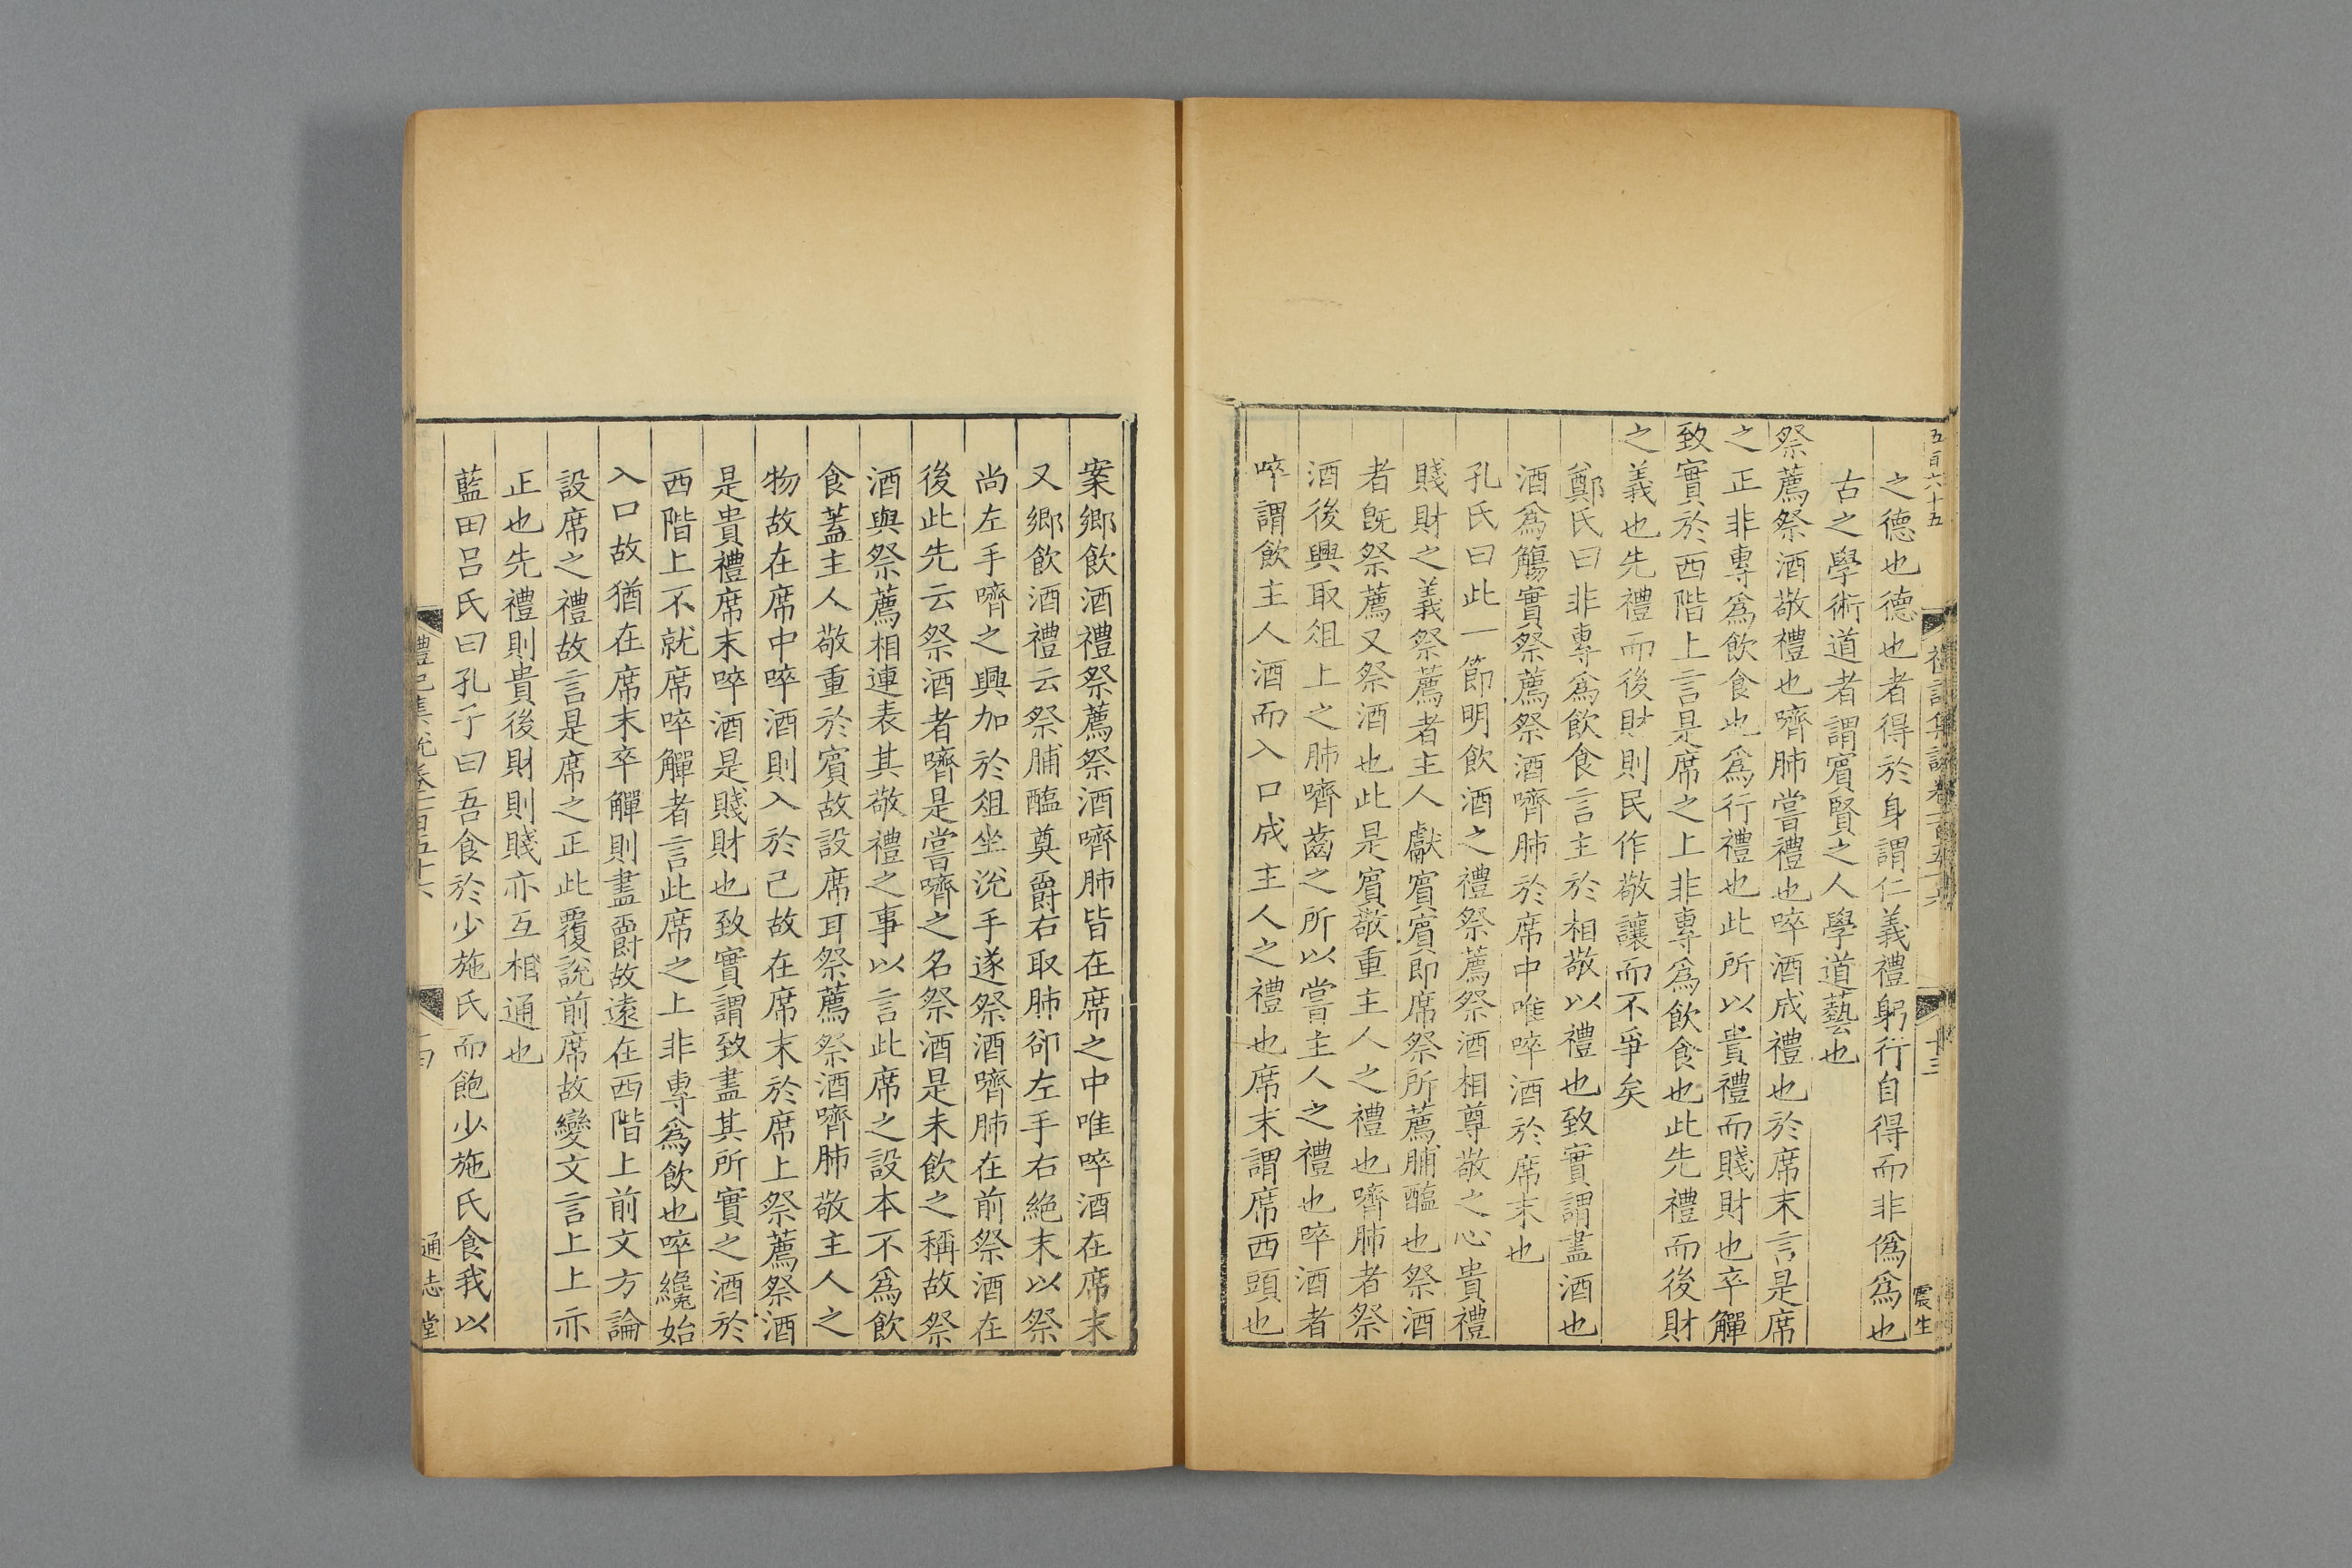 五百六十五
禮記集說卷一百五十六
十三
震生
之德也德也者得於身謂仁義禮躬行自得而非僞爲也
古之學術道者謂賓賢之人學道藝也
祭薦祭酒敬禮也嚌肺嘗禮也啐酒成禮也於席末言是席
之正非專爲飲食也爲行禮也此所以貴禮而賤財也卒觶
致實於西階上言是席之上非專爲飲食也此先禮而後財
之義也先禮而後財則民作敬讓而不爭矣
鄭氏曰非專爲飲食言主於相敬以禮也致實謂盡酒也
酒爲觴實祭薦祭酒嚌肺於席中唯啐酒於席末也
孔氏曰此一節明飲酒之禮祭薦祭酒相尊敬之心貴禮
賤財之義祭薦者主人獻賓賓即席祭所薦脯醢也祭酒
者旣祭薦又祭酒也此是賓敬重主人之禮也嚌肺者祭
酒後興取俎上之肺嚌齒之所以嘗主人之禮也啐酒者
啐謂飲主人酒而入口成主人之禮也席末謂席西頭也
案鄉飲酒禮祭薦祭酒嚌肺皆在席之中唯啐酒在席末
又鄉飲酒禮云祭脯醢奠爵右取肺卻左手右絶末以祭
尚左手嚌之興加於俎坐涗手遂祭酒嚌肺在前祭酒在
後此先云祭酒者嚌是嘗嚌之名祭酒是未飲之稱故祭
酒與祭薦相連表其敬禮之事以言此席之設本不爲飲
食蓋主人敬重於賓故設席耳祭薦祭酒嚌肺敬主人之
物故在席中啐酒則入於己故在席末於席上祭薦祭酒
是貴禮席末啐酒是賤財也致實謂致盡其所實之酒於
西階上不就席啐觶者言此席之上非專爲飲也啐纔始
入口故猶在席末卒觶則盡爵故遠在西階上前文方論
設席之禮故言是席之正此覆說前席故變文言上上亦
正也先禮則貴後財則賤亦互相通也
藍田呂氏曰孔子曰吾食於少施氏而飽少施氏食我以
禮記集說卷一百五十六
十四
通志堂